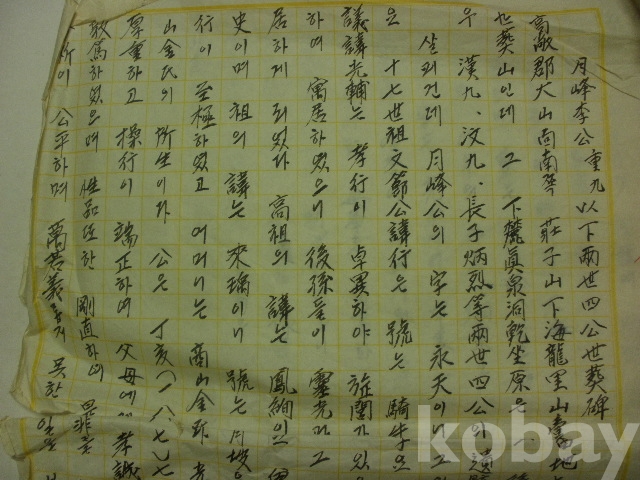 月峰李公重九以下兩世四公世葬碑
高敞郡大山面南 莊子山下海龍里山
世葬山인데 그 下麓眞泉洞乾坐原은
우 漢九、汶九、長子炳烈等兩世四公의遺
살피건데 月峰公의 字는 永天이니 그
은 十七世祖文節公諱行은 號는 騎牛요
議諱光輔는 孝行이 卓異하야 旌閭가 있
하여 寓居하였으니 後孫들이 靈光과 그
居하게 되었다 高祖의 諱는 鳳絢인
史이며 祖의 諱는 來 이니 號는 月坡
行이 至極하였고 어머니는 商山金
山金氏의 所生이다 公은 丁亥(一八七七
厚重하고 操行이 端正하며 父母에게 孝誠
敦篤하였으며 性品또한 剛直하며 罪를
所이 公平하며 萬若義롭지 못한 일을
kobay